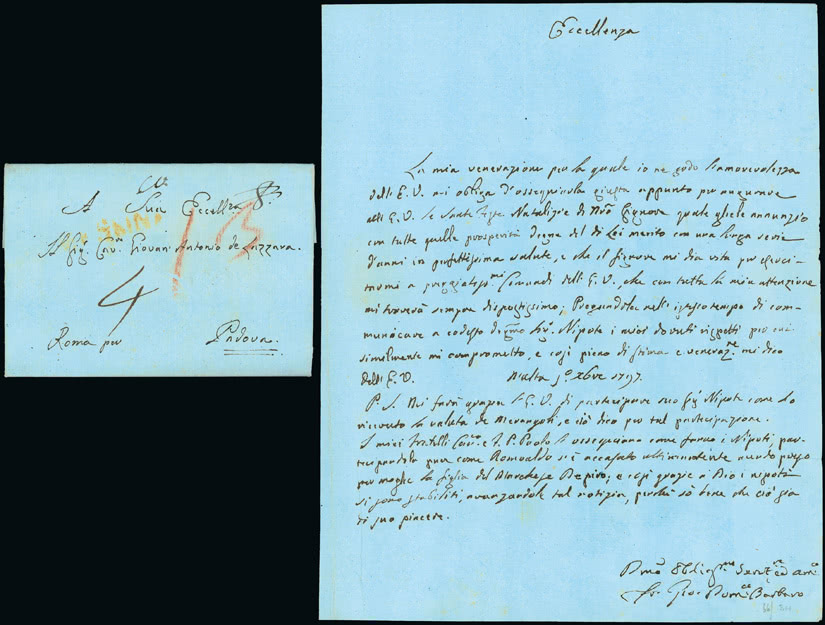 A Sua Eccellza
Al Sigr Cavr Giovani Antonio de Lazzara.
13
4
Roma per Padova.
Eccellenza
La mia venerazione per la quale io ne godo l'amorevolezza
dell' E. V. mi obliga d'ossequiarla giusta appunto per augurare
all' E. V. le Sante Feste Natalizie di Nro Signore quale gliele annunzio
con tutte quelle prosperità degne del di Lei merito con una longa serie
d'anni in perfettissima salute, e che il signore mi dia vita per
Comandi dell' E. V. che con tutta la mia attenzione
mi troverà sempre dispostissimo, Pregandola nell' istesso tempo di com=
municare a codesto degmo Sigr Nipote i miei dovuti rispetti per cui
similmente mi comprometto, e così pieno di stima e veneraze mi dico
dell' E. V. Malta po Xbre 1797.
P. S. Mi farà grazia l' E. V. di partecipare suo Sigr Nipote come ho
ricevuto la valuta de Merangoli, e ciò dico per tal partecipazione.
I miei Fratelli Cano e F. P. Paolo l'ossequiano come fanno i Nipoti, par=
tecipandola pure come Romualdo si è accasato ultimamente avendo preso
per moglie la figlia del Marchese Depiro, e così grazie a Dio i nipoti
si sono stabiliti, avanzandole tal notizia, perchè sò bene che ciò gia
di suo piacere.
Obligmo Servre ed amco
Fr. Gio: Domco Barbaro